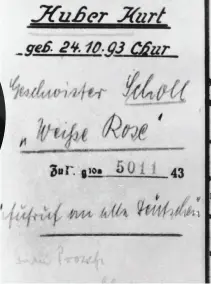 Huber Kurt
geb. 24.10.93 Chur
Geschwister Scholl
„Weiße Rose"
Zu T. g10a 5011 43
Aufruf an alle Deutschen
Prozeß